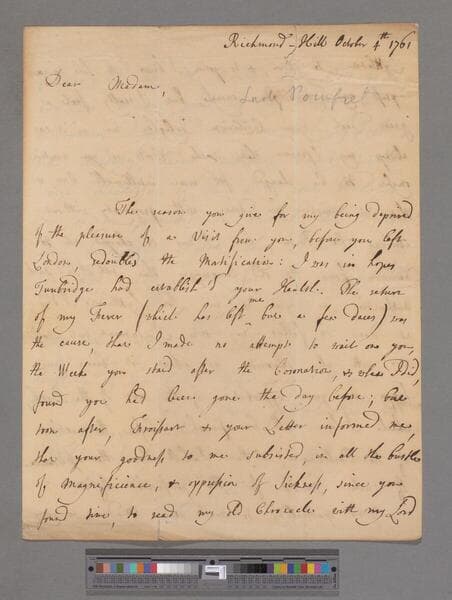 Richmond-Hill October 4th 1761
Dear Madam,
Lady Pomfret
The reason you give for my being deprived
of the pleasure of a Visit from you, before you left
London, redoubles the Mortification: I was in hopes
Tunbridge had establish'd your Health. The return
of my Fever (which has left me but a few daies) was
the cause, that I made no attempt to wait on you,
the Week you staid after the Coronation, & when I did,
found you had been gone the Day before; but
soon after, Froissart & your Letter informed me,
that your goodness to me subsisted, in all the bustle
of Magnificience, & oppression of Sickness, since you
found time, to read my Old Chronicle with my Lord